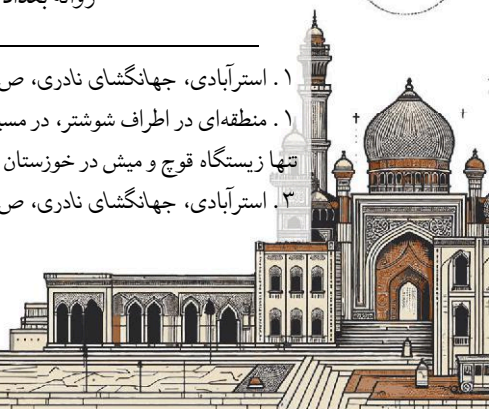 روانه بغداد
۱. استرآبادی، جهانگشای نادری، ص
۱. منطقه‌ای در اطراف شوشتر، در مسیر
تنها زیستگاه قوچ و میش در خوزستان
۳. استرآبادی، جهانگشای نادری، ص